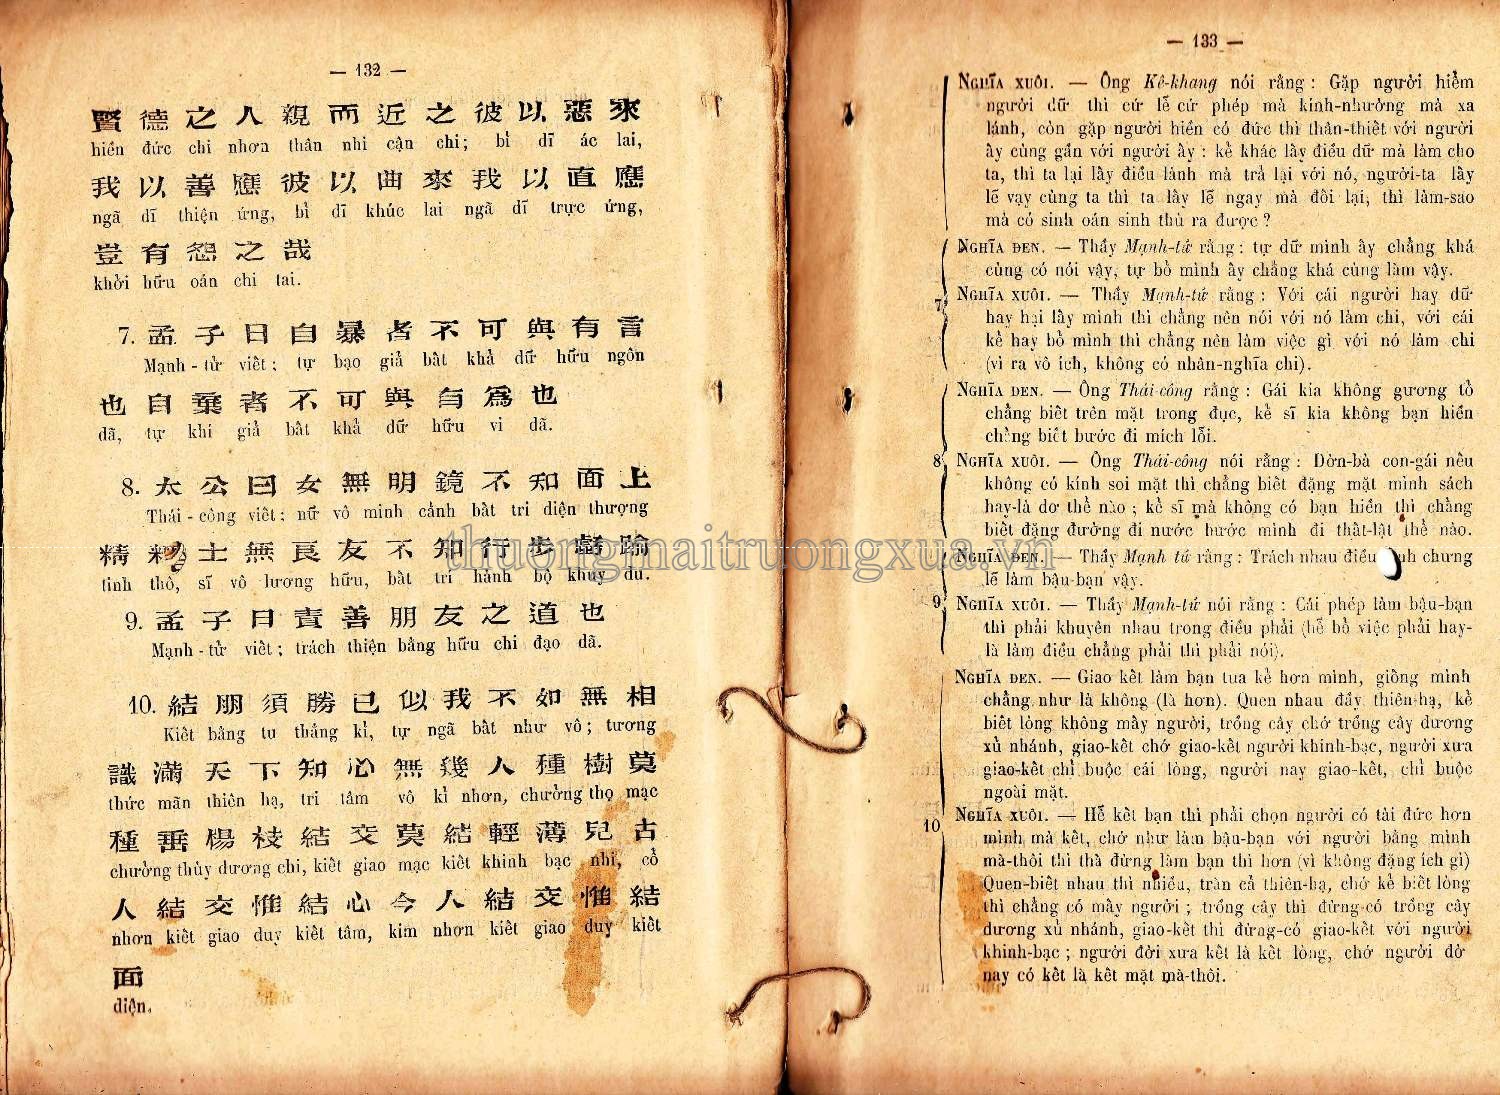 — 132 —
賢德之人親而近之彼以惡來
hiền đức chi nhơn thân nhi cận chi; bỉ dĩ ác lai,
我以善應彼以曲來我以直應
ngã dĩ thiện ứng, bỉ dĩ khúc lai ngã dĩ trực ứng,
豈有怨之哉
khởi hữu oán chi tai.
7. 孟子曰自暴者不可與有言
Mạnh-tử viết; tự bạo giả bất khả dữ hữu ngôn
也自棄者不可與有爲也
dã, tự khí giả bất khả dữ hữu vi dã.
8. 太公曰女無明鏡不知面上
Thái-công viết; nữ vô minh cảnh bất tri diện thượng
精 士無良友不知行步 踰
tinh thô, sĩ vô lương hữu, bất tri hành bộ khuy du.
9. 孟子曰責善朋友之道也
Mạnh-tử viết; trách thiện bằng hữu chi đạo dã.
10. 結朋須勝已似我不如無相
Kiết bằng tu thắng kỉ, tự ngã bất như vô; tương
識滿天下知心無幾人種樹莫
thức mãn thiên hạ, tri tâm vô kỉ nhơn, chưởng thọ mạc
種垂楊枝結交莫結輕薄兒古
chưởng thùy dương chi, kiết giao mạc kiết khinh bạc nhi, cổ
人結交惟結心今人結交惟結
nhơn kiết giao duy kiết tâm, kim nhơn kiết giao duy kiết
面
diện.
— 133 —
NGHĨA XUÔI. — Ông Kê-khang nói rằng : Gặp người hiềm
người dữ thì cứ lễ cứ phép mà kính-nhưởng mà xa
lánh, còn gặp người hiền có đức thì thân-thiết với người
ấy cùng gần với người ấy : kẻ khác lấy điều dữ mà làm cho
ta, thì ta lại lấy điều lành mà trả lại với nó, người-ta lấy
lẽ vạy cùng ta thì ta lấy lẽ ngay mà đối lại, thì làm-sao
mà có sinh oán sinh thù ra được ?
NGHĨA ĐEN. — Thầy Mạnh-tử rằng : tự dữ mình ấy chẳng khá
cùng có nói vậy, tự bỏ mình ấy chẳng khá cùng làm vậy.
7 NGHĨA XUÔI. — Thầy Mạnh-tử rằng : Với cái người hay dữ
hay hại lấy mình thì chẳng nên nói với nó làm chi, với cái
kẻ hay bỏ mình thì chẳng nên làm việc gì với nó làm chi
(vì ra vô ích, không có nhân-nghĩa chi).
NGHĨA ĐEN. — Ông Thái-công rằng : Gái kia không gương tỏ
chẳng biết trên mặt trong đục, kẻ sĩ kia không bạn hiền
chẳng biết bước đi mích lỗi.
8 NGHĨA XUÔI. — Ông Thái-công nói rằng : Đờn-bà con-gái nếu
không có kính soi mặt thì chẳng biết đặng mặt mình sách
hay-là dơ thể nào ; kẻ sĩ mà không có bạn hiền thì chẳng
biết đặng đường đi nước bước mình đi thật-lật thể nào.
NGHĨA ĐEN — Thầy Mạnh tử rằng : Trách nhau điều chưng
lẽ làm bậu-bạn vậy.
9 NGHĨA XUÔI. — Thầy Mạnh-tử nói rằng : Cái phép làm bậu-bạn
thì phải khuyên nhau trong điều phải (hễ bỏ việc phải hay-
là làm điều chẳng phải thì phải nói).
NGHĨA ĐEN. — Giao kết làm bạn tua kẻ hơn mình, giống mình
chẳng như là không (là hơn). Quen nhau đầy thiên-hạ, kẻ
biết lòng không mấy người, trồng cây chớ trồng cây dương
xủ nhánh, giao-kết chớ giao-kết người khinh-bạc, người xưa
giao-kết chỉ buộc cái lòng, người nay giao-kết, chỉ buộc
ngoài mặt.
10 NGHĨA XUÔI. — Hễ kết bạn thì phải chọn người có tài đức hơn
mình mà kết, chớ như làm bậu-bạn với người bằng mình
mà-thôi thì thà đừng làm bạn thì hơn (vì không đặng ích gì)
Quen-biết nhau thì nhiều, tràn cả thiên-hạ, chớ kẻ biết lòng
thì chẳng có mấy người ; trồng cây thì đừng-có trồng cây
dương xủ nhánh, giao-kết thì đừng-có giao-kết với người
khinh-bạc ; người đời xưa kết là kết lòng, chớ người đờ
nay có kết là kết mặt mà-thôi.
thuongmaitruongxua.vn